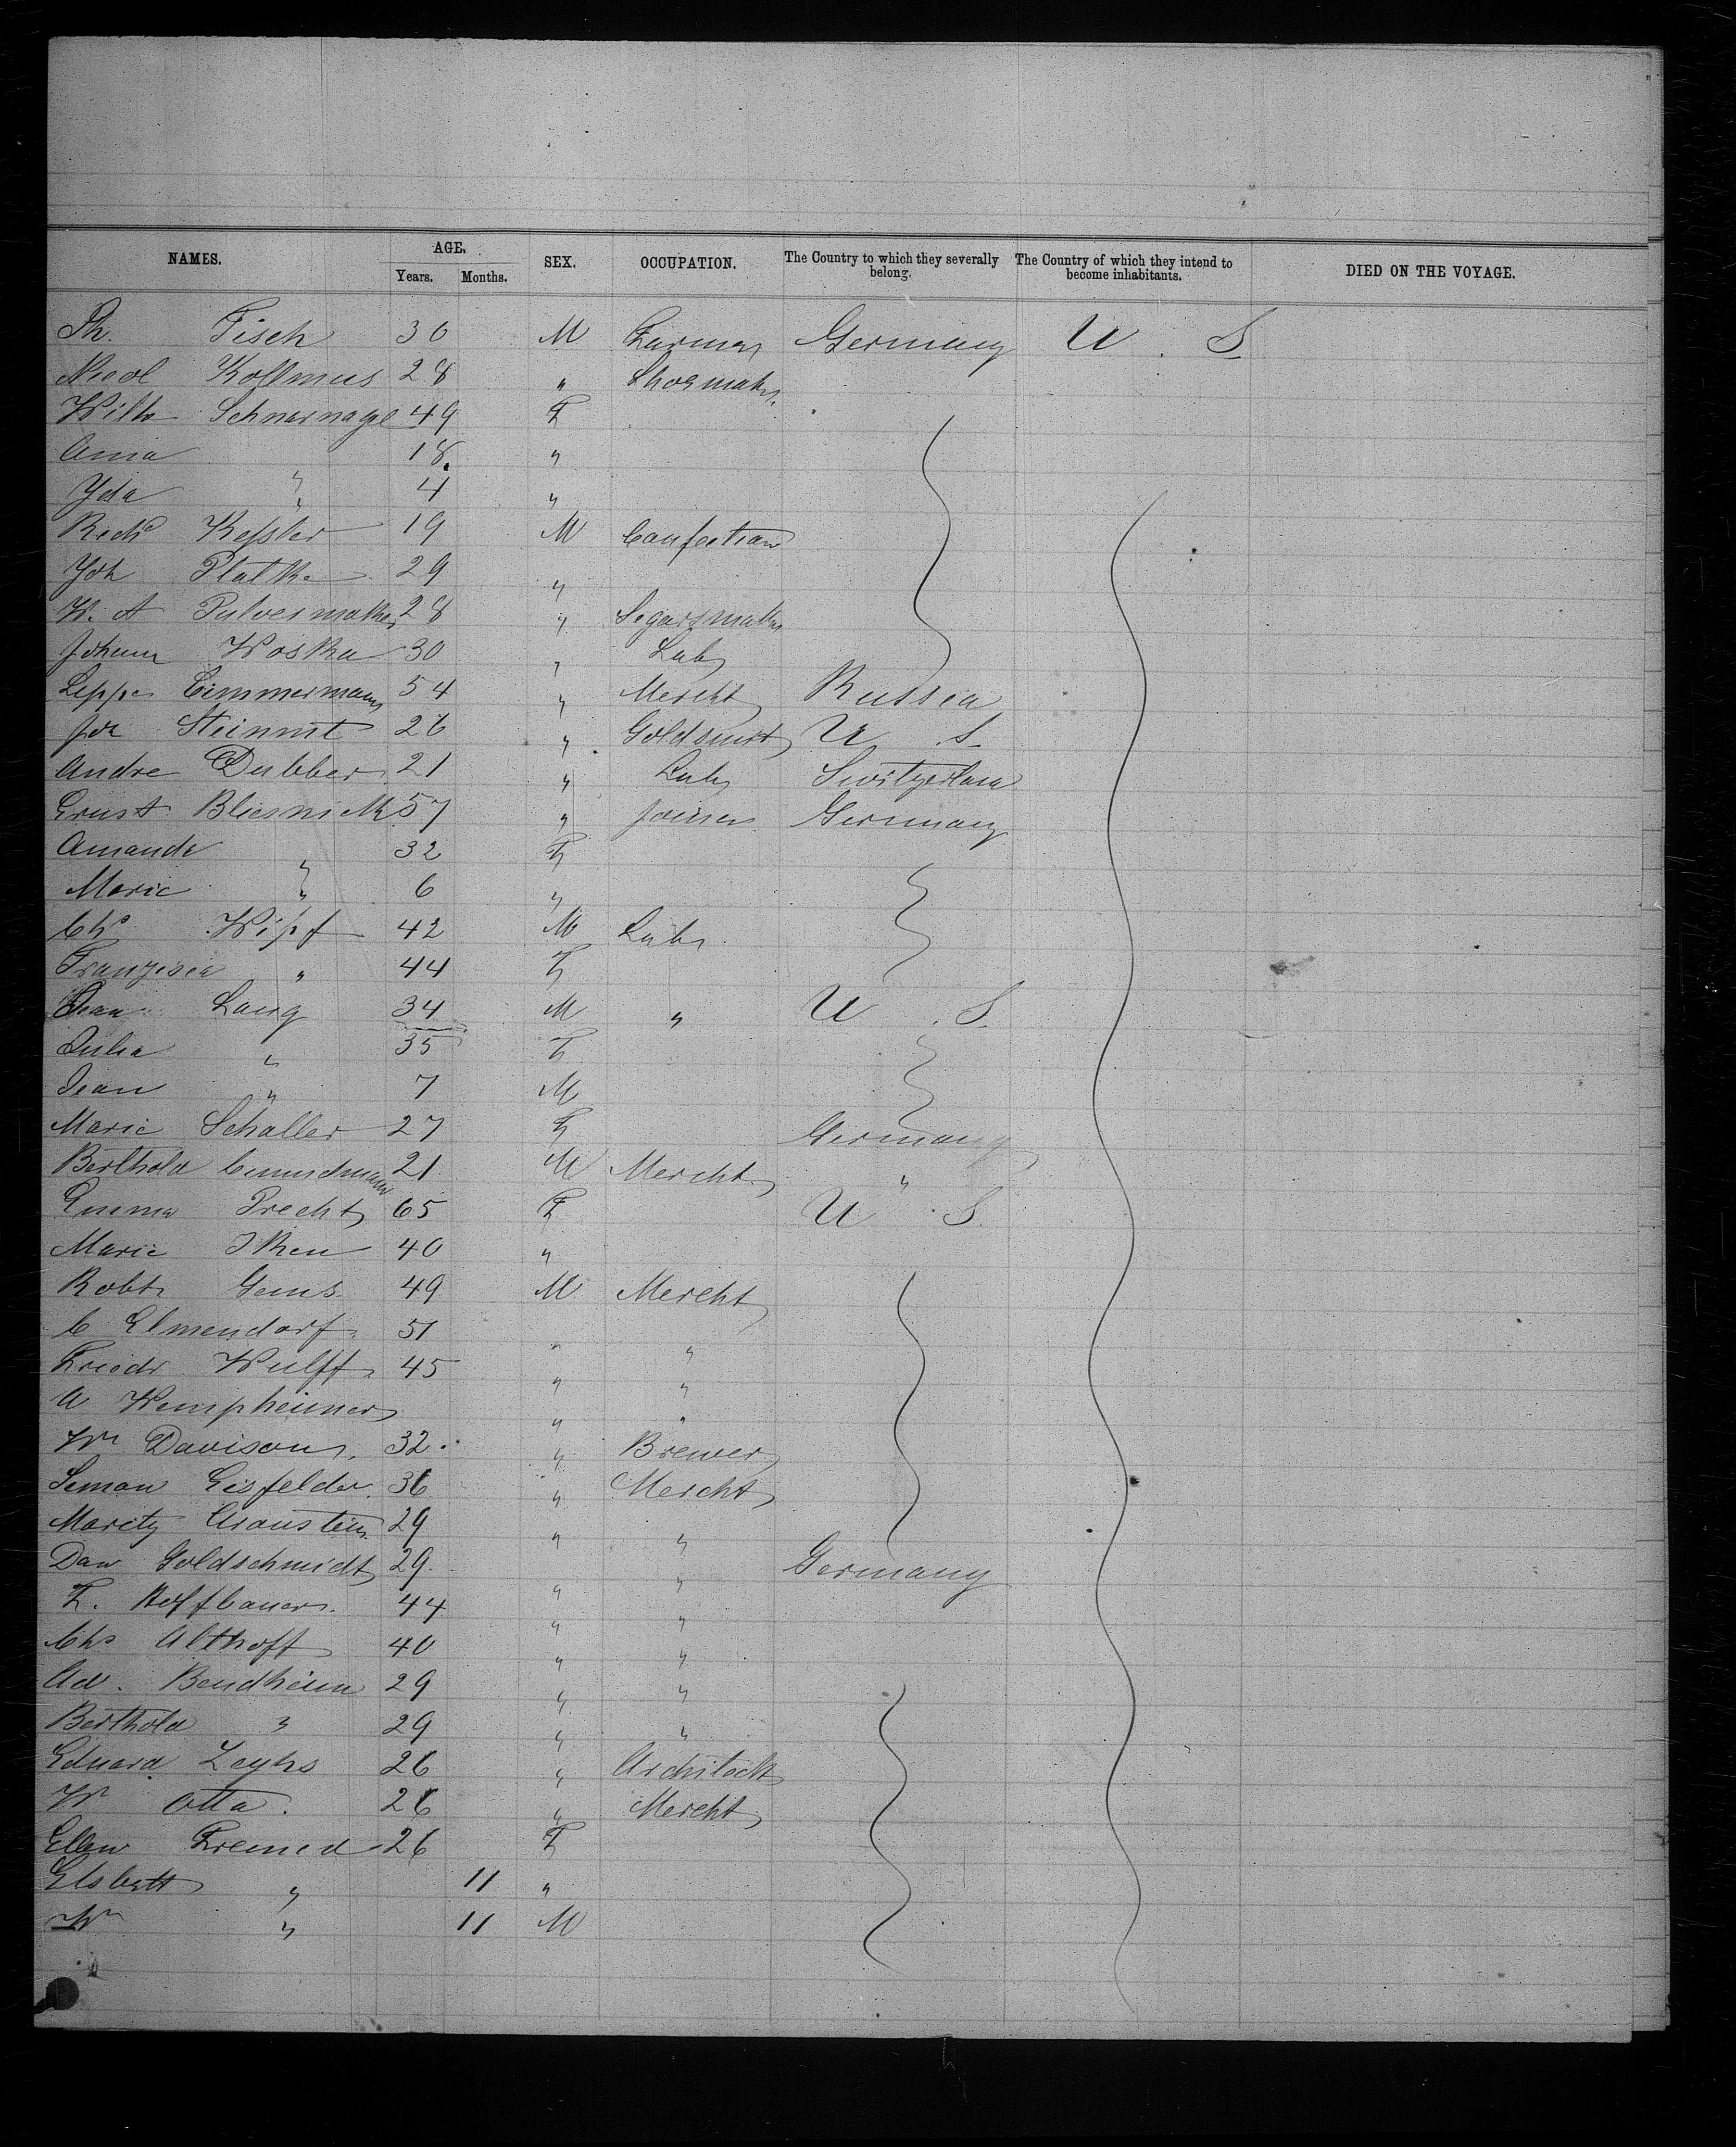 NAMES. AGE. SEX. OCCUPATION. The Country to which they severally belong. The Country of which they intend to become inhabitants. DIED ON THE VOYAGE.
Years. Months.
Ph. Fisch 30 M Farmer Germany U. S
Nicol Kollmus 28 " Shoemaker
Wilh Schnarnagel 49 F
Anna " 18 "
Yda " 4 "
Richd Kessler 19 M Confection
Joh Platke 29 "
W. A Pulvermacher 28 " Segarsmaker
Johann Woska 30 " Labr
Leppe Cimmermann 54 " Mercht Russia
Joh Steinmt 26 " Goldsmit U. S.
Andre Dubber 21 " Labr Switzerland
Ernst Bliesnick 57 " Joiner Germany
Amande " 32 F
Marie " 6 "
Chs Wipf 42 M Labr
Franzisca " 44 F
Jean Lang 34 M " U. S.
Julia " 35 F
Jean " 7 M
Marie Schaller 27 F Germany
Berthold 21 M Mercht "
Emma Precht 65 F U. S.
Marie Iken 40 "
Robt Gems 49 M Mercht
C Elmendorf 51 " "
Friedr Wulff 45 " "
A Wempheimer " "
Wm Davison 32 " Brewer
Simon Eisfelder 36 " Mercht
Moritz Aronstein 29 " "
Dan Goldschmidt 29 " " Germany
F. Hoffbauer 44 " "
Chs Althoff 40 " "
Ad. Bendheim 29 " "
Berthold " 29 " "
Eduard Zeyhs 26 " Architeckt
Wm Otta. 26 " Mercht
Ellen Fremed 26 F
Elsbett " 11 "
Wm " 11 M